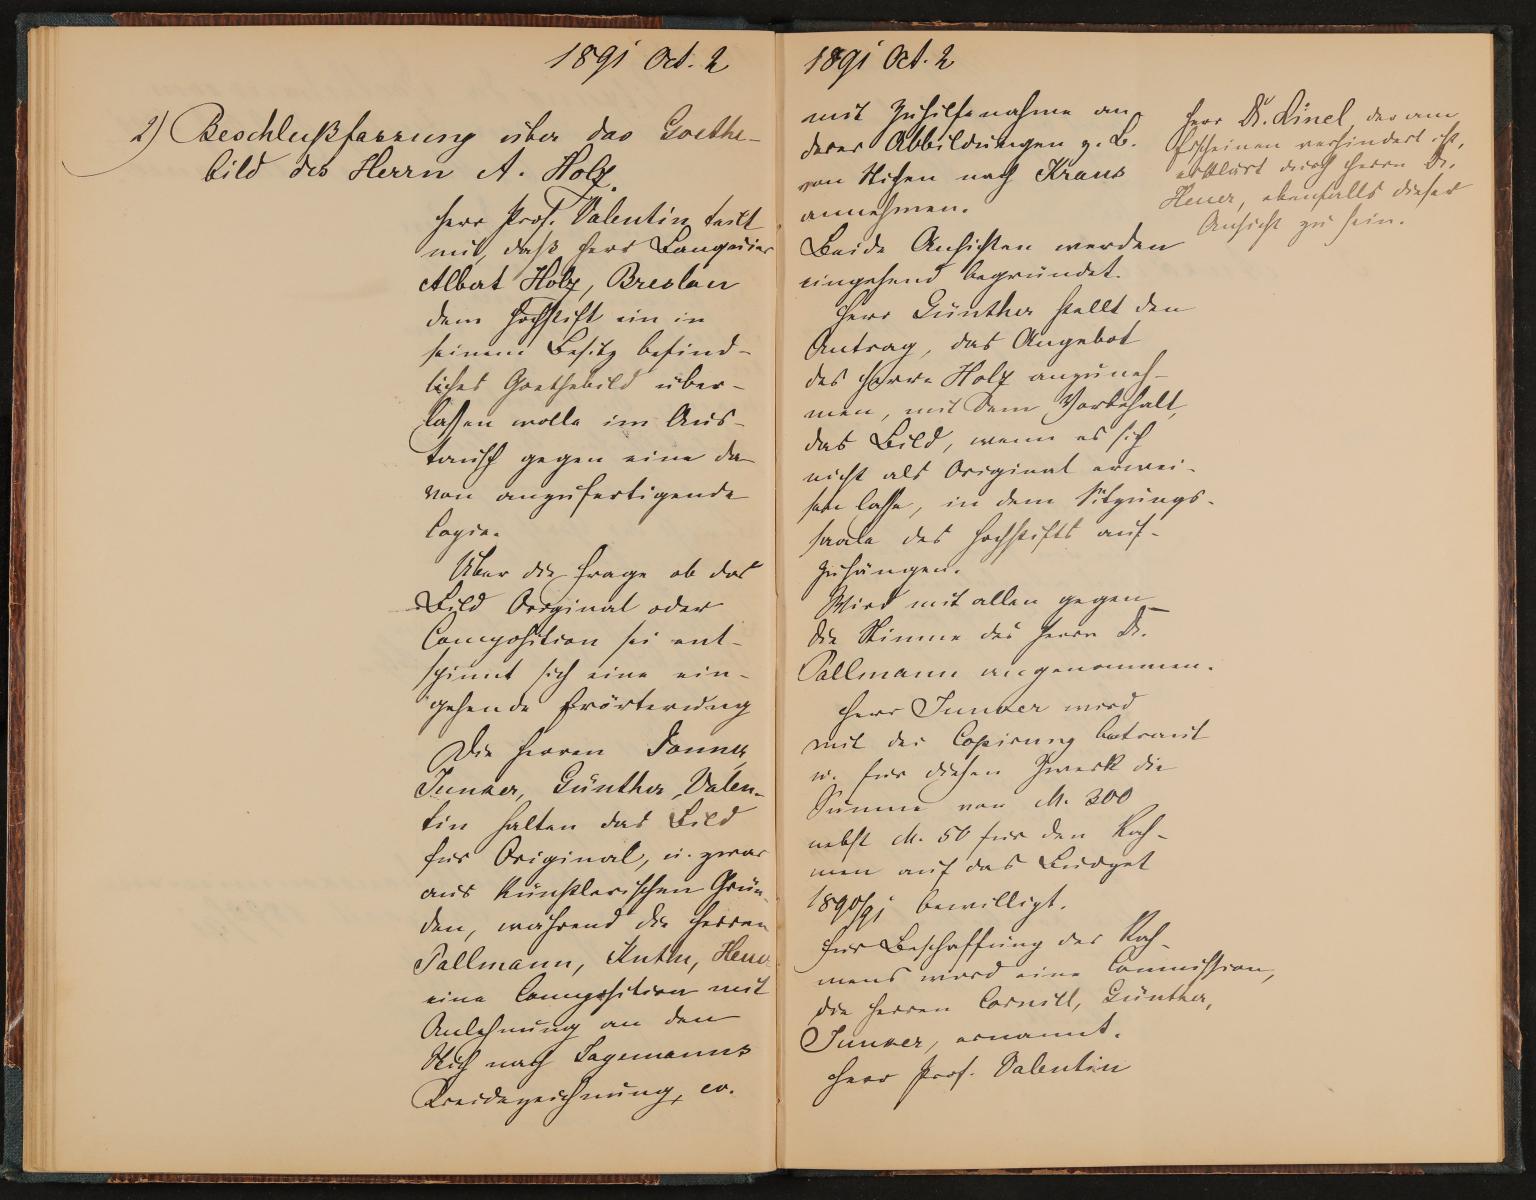 1891 Oct. 2
2) Beschlußfassung über das Goethe-
bild des Herrn A. Holz.
Herr Prof. Valentin teilt
mit, daß Herr Banquier
Albert Holz, Breslau
dem Hochstift ein in
seinem Besitz befind-
liches Goethebild über-
lassen wolle im Aus-
tausch gegen eine da-
von anzufertigende
Copie.
Über die Frage ob das
Bild Original oder
Composition sei ent-
spinnt sich eine ein-
gehende Erörterung
Die Herren Donner,
Junker, Günther, Valen-
tin halten das Bild
für Original, u. zwar
aus künstlerischen Grün-
den, während die Herren
Pallmann, Heuer
eine Composition mit
Anlehnung an den
Stich nach Jagemanns
Kreidezeichnung, ev.
1891 Oct. 2
mit Zuhilfenahme an
derer Abbildungen z. B.
von Stichen nach Kraus
annehmen.
Beide Ansichten werden
eingehend begründet.
Herr Günther stellt den
Antrag, das Angebot
des Herrn Holz anzuneh-
men, mit dem Vorbehalt,
das Bild, wenn es sich
nicht als Original erwei-
sen lasse, in dem Sitzungs-
saale des Hochstifts auf-
zuhängen.
Wird mit allen gegen
die Stimme des Herrn Dr.
Pallmann angenommen.
Herr Junker wird
mit der Copirung betraut
u. für diesen Zweck die
Summe von M. 300
nebst M. 50 für den Rah-
men auf das Budget
1890/91 bewilligt.
Für Beschaffung des Rah-
mens wird eine Commission,
die Herren Cornill, Günther,
Junker, ernannt.
Herr Prof. Valentin
Herr Dr. Rinel, der am
Erscheinen verhindert ist,
erklärt durch Herrn Dr.
Heuer, ebenfalls dieser
Ansicht zu sein.